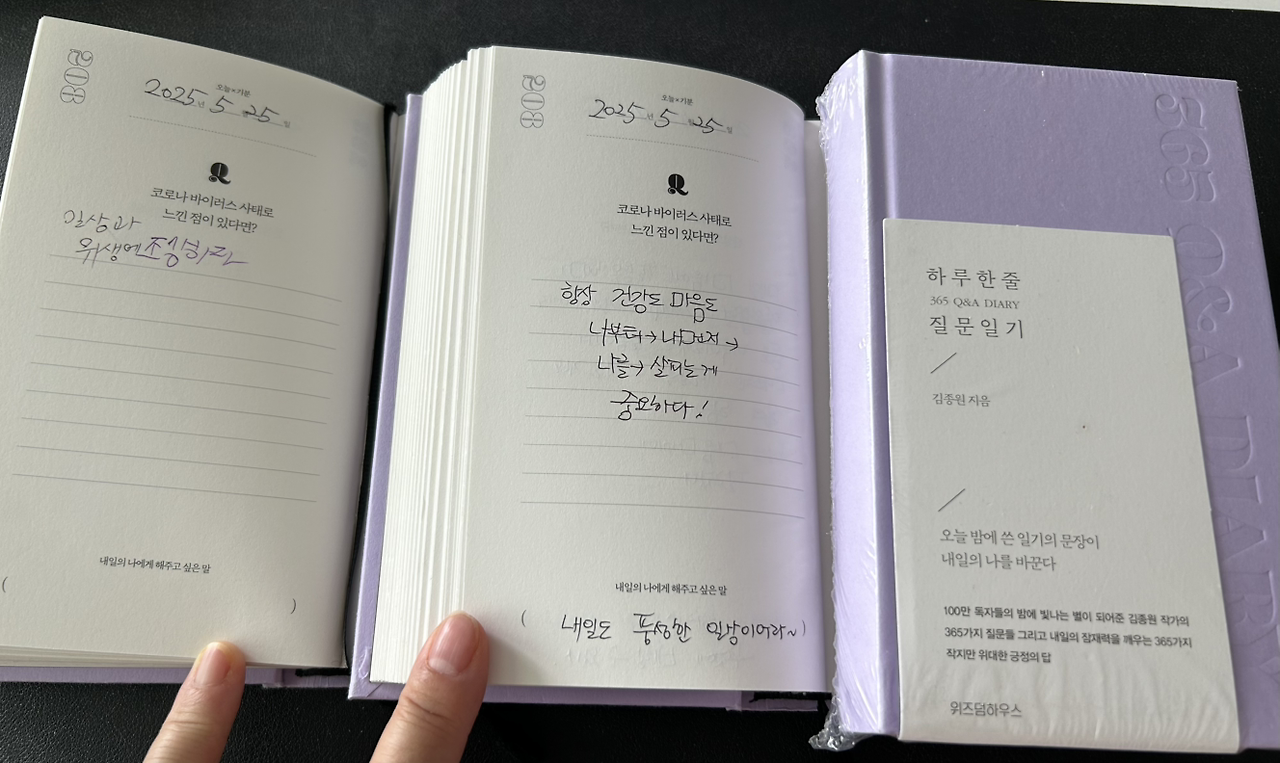 208
오늘의 기분
2025년 5월 25일
Q
코로나 바이러스 사태로
느낀 점이 있다면?
일상과
위생엔 조심하라
내일의 나에게 해주고 싶은 말
( )
208
오늘의 기분
2025년 5월 25일
Q
코로나 바이러스 사태로
느낀 점이 있다면?
항상 건강도 마음도
나부터→나먼저→
나를→살피는게
중요하다!
내일의 나에게 해주고 싶은 말
( 내일도 풍성한 일상이어라~)
365 Q&A DIARY
하루 한 줄
365 Q&A DIARY
질문 일기
김종원 지음
오늘 밤에 쓴 일기의 문장이
내일의 나를 바꾼다
100만 독자들의 밤에 빛나는 별이 되어준 김종원 작가의
365가지 질문들 그리고 내일의 잠재력을 깨우는 365가지
작지만 위대한 긍정의 답
위즈덤하우스